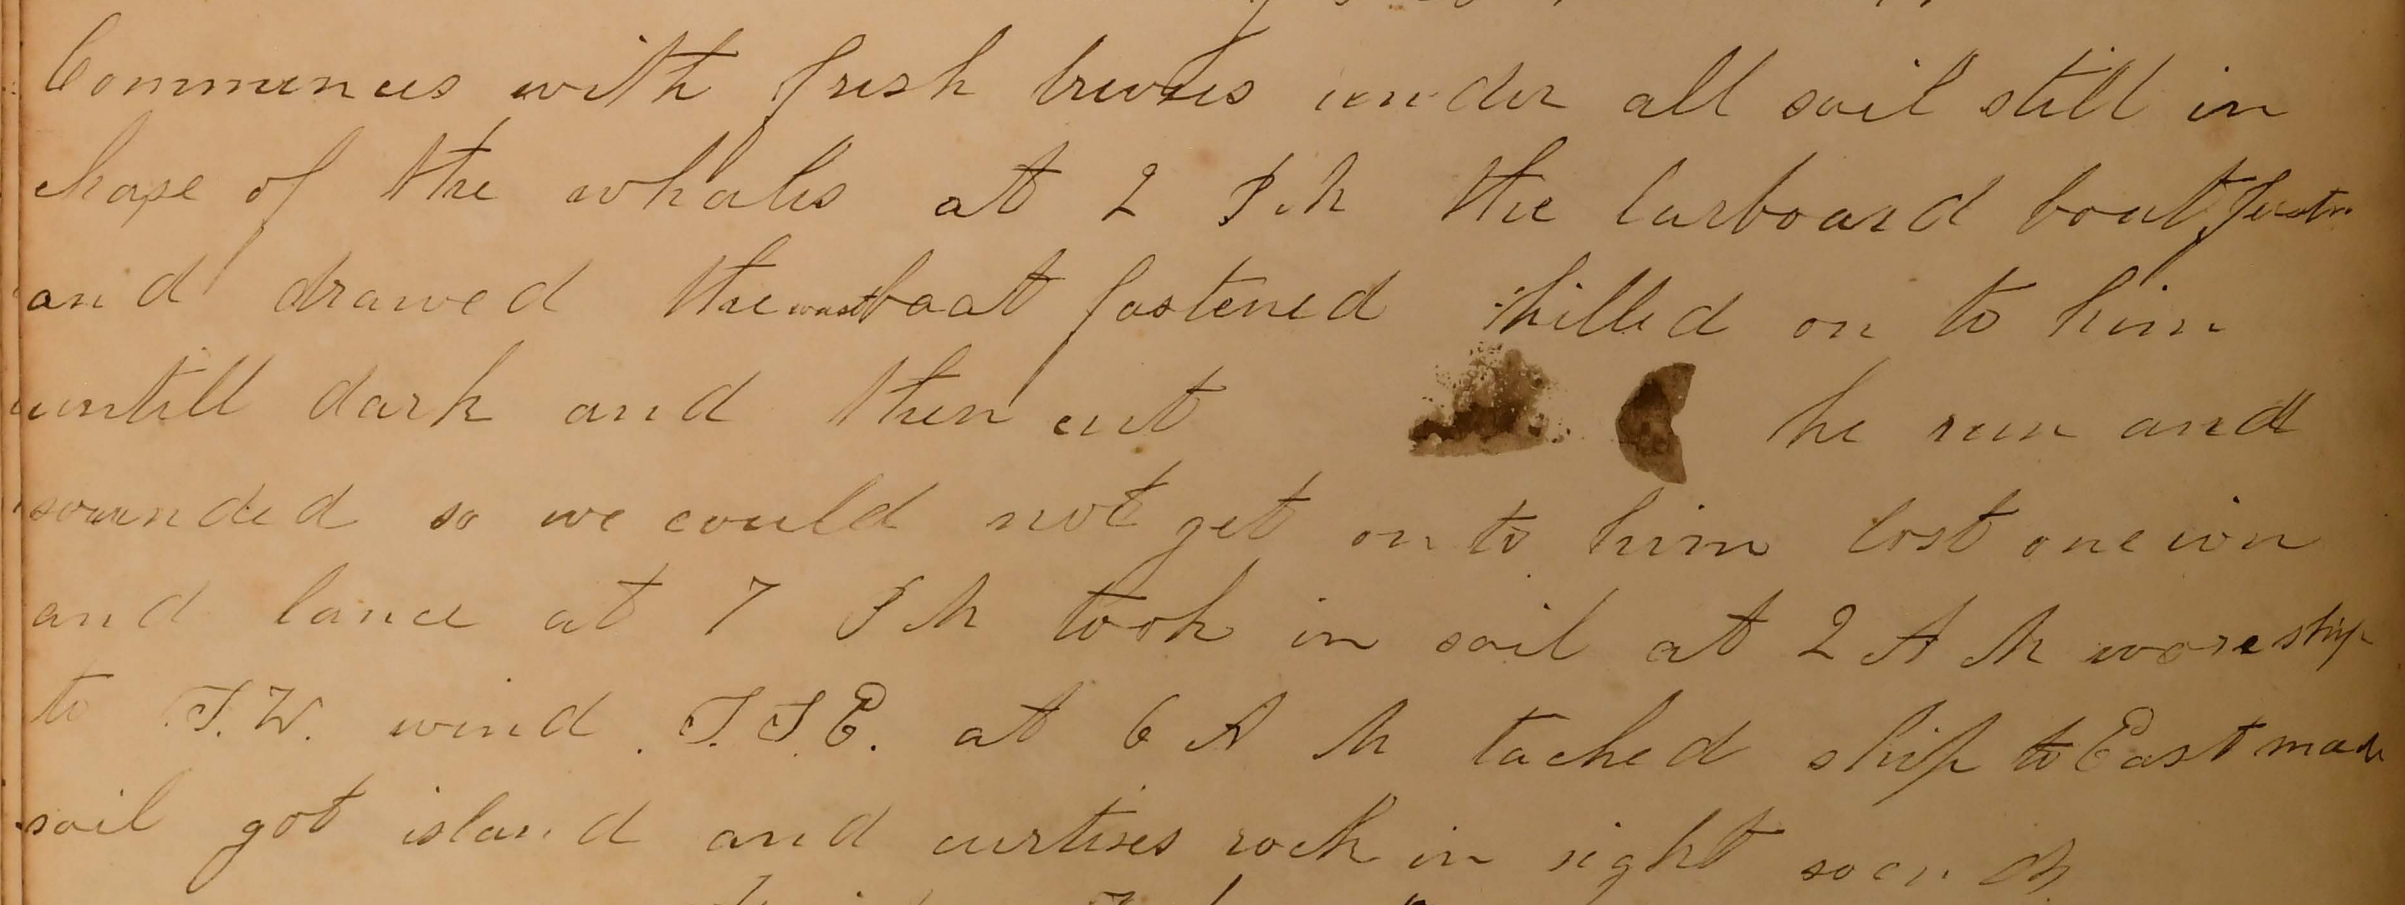 Commences with fresh breezes under all sail still in
chase of the whales at 2 P.M the larboard boat
and drawed the waist boat fastened killed on to him
untill dark and then cut he run and
sounded so we could not get on to him lost one iron
and lance at 7 P M took in sail at 2 A M wore ship
to S.W. wind. S.S.E. at 6 A M tacked ship to East made
sail got island and curtises rock in sight so ends